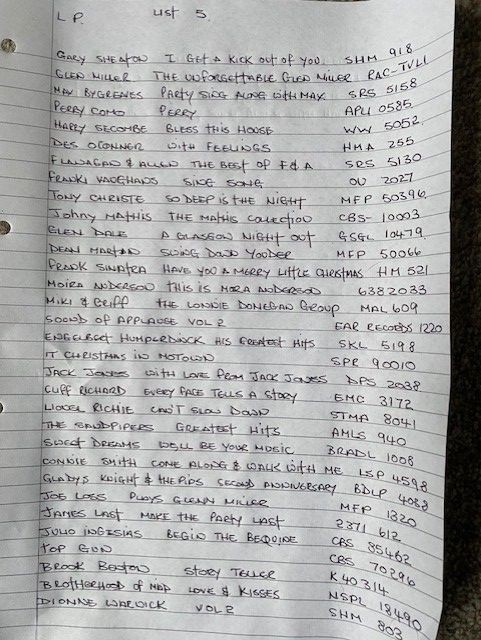 L P. LIST 5.
GARY SHEATON I GET A KICK OUT OF YOU. SHM 918
GLEN MILLER THE UNFORGETTABLE GLEN MILLER RAC-TVL1
MAX BYGREAVES PARTY SING ALONG WITH MAX SRS 5158
PERRY COMO PERRY APLI 0585
HARRY SECOMBE BLESS THIS HOUSE WW 5052.
DES OCONNER WITH FEELINGS HMA 255
FLANAGAN & ALLEN THE BEST OF F & A SRS 5130
FRANKI VAUGHANS SING SONG OU 2027
TONY CHRISTE SO DEEP IS THE NIGHT MFP 50396
JOHNY MATHIS THE MATHIS COLLECTION CBS-10003
GLEN DALE A GLASGOW NIGHT OUT GSGL 10479
DEAN MARTAN SWING DOWN YOUDER MFP 50066
FRANK SINATRA HAVE YOU A MERRY LITTLE CHRISTMAS HM 521
MOIRA ANDERSON THIS IS MORA ANDERSON 6382033
MIKI & GRIFF THE LONNIE DONEGAN GROUP MAL 609
SOUND OF APPLAUSE VOL 2 EAR RECORDS 1220
ENGELBERT HUMPERDINCK HIS GREATEST HITS SKL 5198
IT CHRISTMAS IN MOTOWN SPR 90010
JACK JONES WITH LOVE FROM JACK JONES DPS 2038
CLIFF RICHARD EVERY FACE TELLS A STORY EMC 3172
LIONEL RICHIE CAN'T SLOW DOWN STMA 8041
THE SANDPIPERS GREATEST HITS AMLS 940
SWEET DREAMS WELL BE YOUR MUSIC BRADL 1008
CONNIE SMITH COME ALONG & WALK WITH ME LSP 4598
GLADYS KNIGHT & THE PIPS SECOND ANNIVERSARY BDLP 4038
JOE LOSS PLAYS GLENN MILLER MFP 1320
JAMES LAST MAKE THE PARTY LAST 2371 612
JULIO INGESIAS BEGIN THE BEQUINE CBS 85462
TOP GUN CBS 70296
BROOK BENTON STORY TELLER K 40314
BROTHERHOOD OF MAN LOVE & KISSES NSPL 18490
DIONNE WARWICK VOL 2 SHM 803